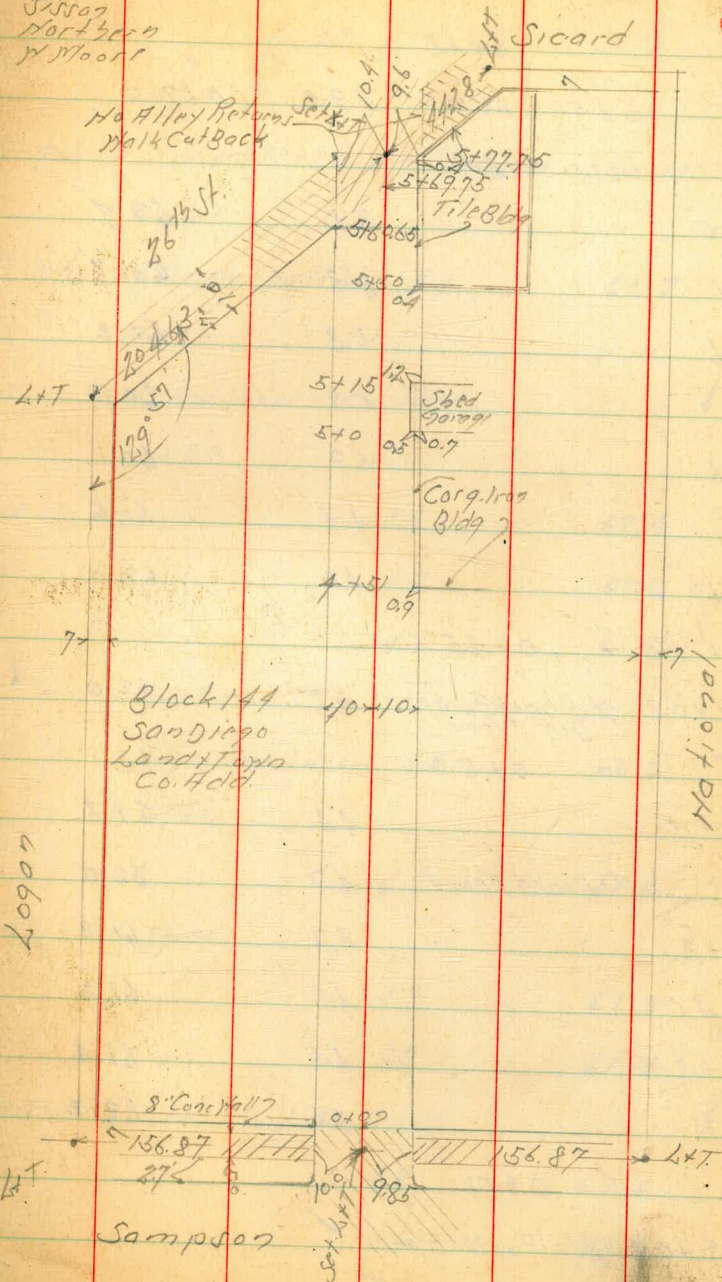 Sisson
Northern
W Moore
Sicard
L+T
7
No Alley Returns
Walk Cut Back
Set
10.4
9.6
44.28
5+77.75
5+69.75
Tile Bldg
26th St.
5+60.65
5+50
0.4
204.63
129° 57'
L+T
5+15
1.2
Shed
Garage
5+0
0.5
0.7
Corg. Iron
Bldg
4+51
0.9
7
7
Block 144
San Diego
Land & Town
Co. Add.
10
10
Logan
8" Conc Wall
0+00
7
156.87
156.87
L+T
L+T
27'
10.
9.85
Set L+T
Sampson